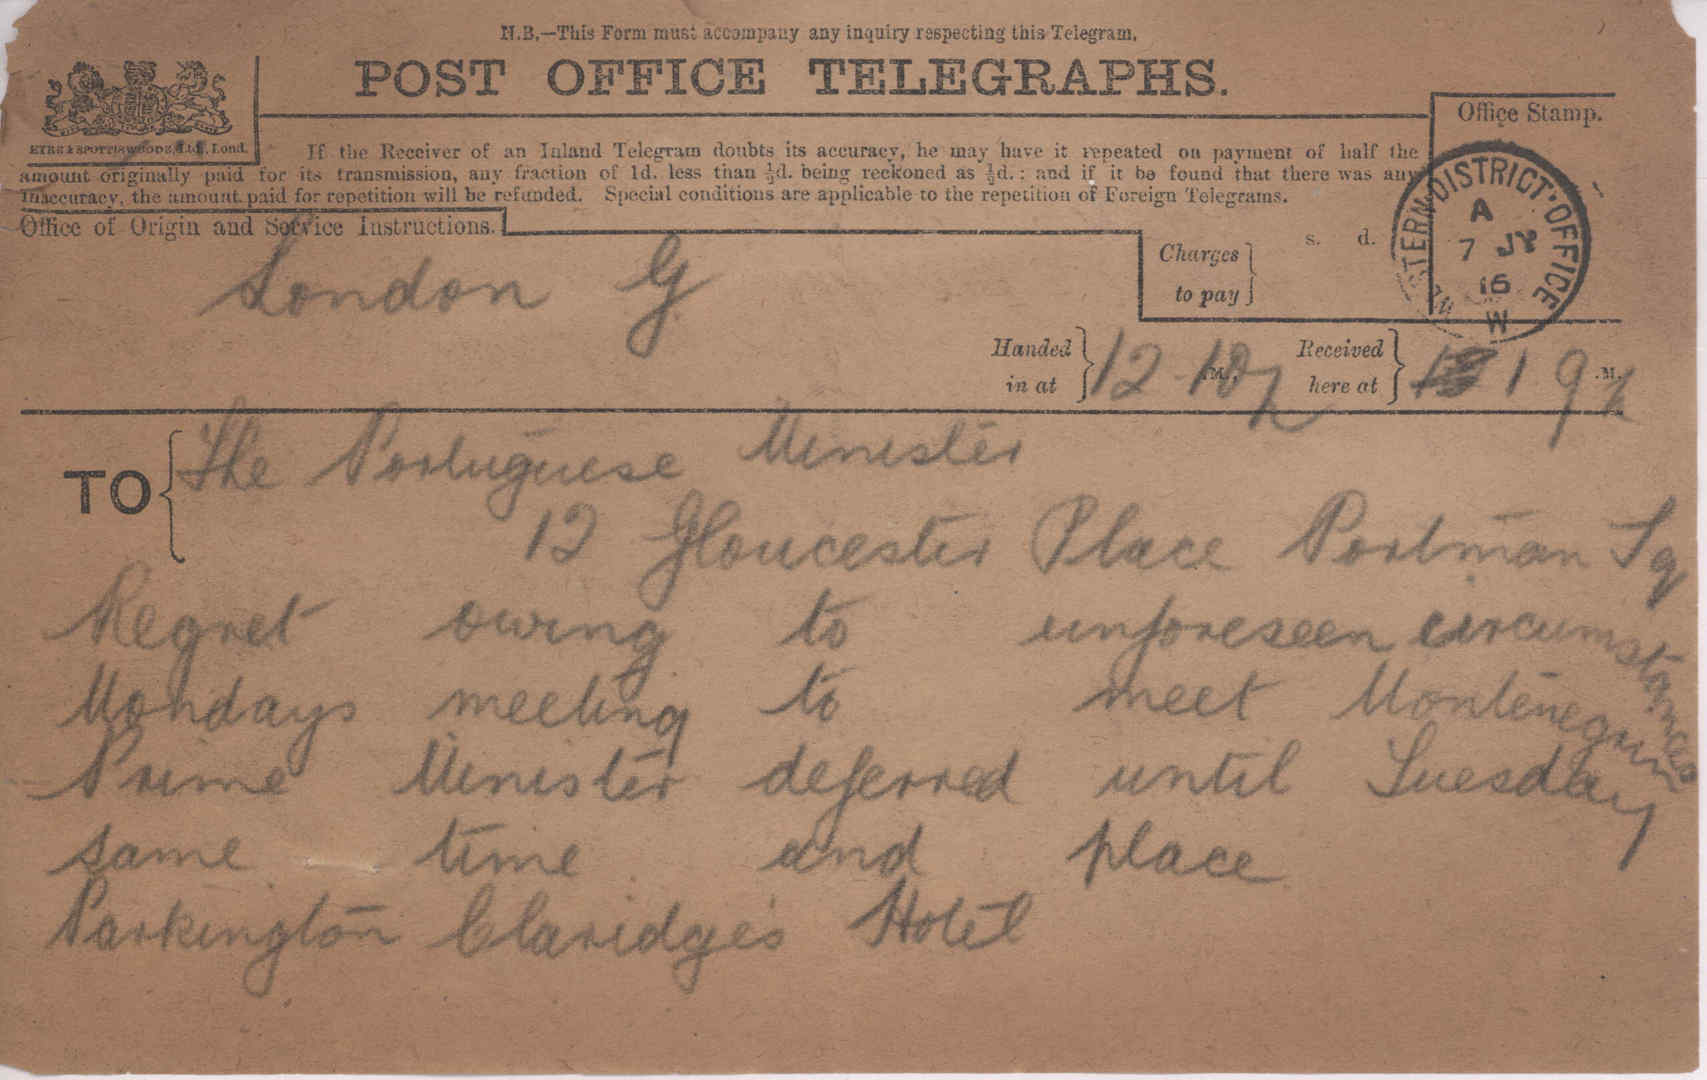 N.B.—This Form must accompany any inquiry respecting this Telegram.
POST OFFICE TELEGRAPHS.
EYRE & SPOTTISWOODE, Ltd., Lond.
If the Receiver of an Inland Telegram doubts its accuracy, he may have it repeated on payment of half the
amount originally paid for its transmission, any fraction of 1d. less than ½d. being reckoned as ½d.: and if it be found that there was any
inaccuracy, the amount paid for repetition will be refunded. Special conditions are applicable to the repetition of Foreign Telegrams.
Office Stamp.
WESTERN DISTRICT OFFICE
A
7 JY
16
W
Office of Origin and Service Instructions.
Charges to pay
s. d.
London G
Handed in at 12 M.,
Received here at 1 9 M.
TO
The Portuguese Minister
12 Gloucester Place Portman Sq
Regret owing to unforeseen circumstances
Mondays meeting to meet Montenegrin
Prime Minister deferred until Tuesday
same time and place
Parkington Claridge's Hotel